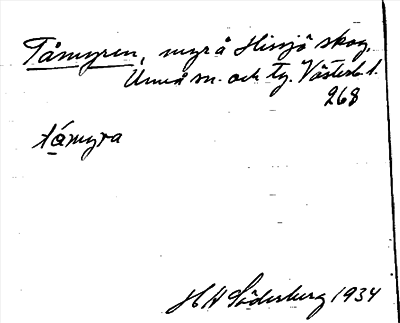 Tåmyren, myr å Hissjö skog,
Umeå sn. och tg. Västerb. l.
268
tá̱myra
H H Söderberg 1934